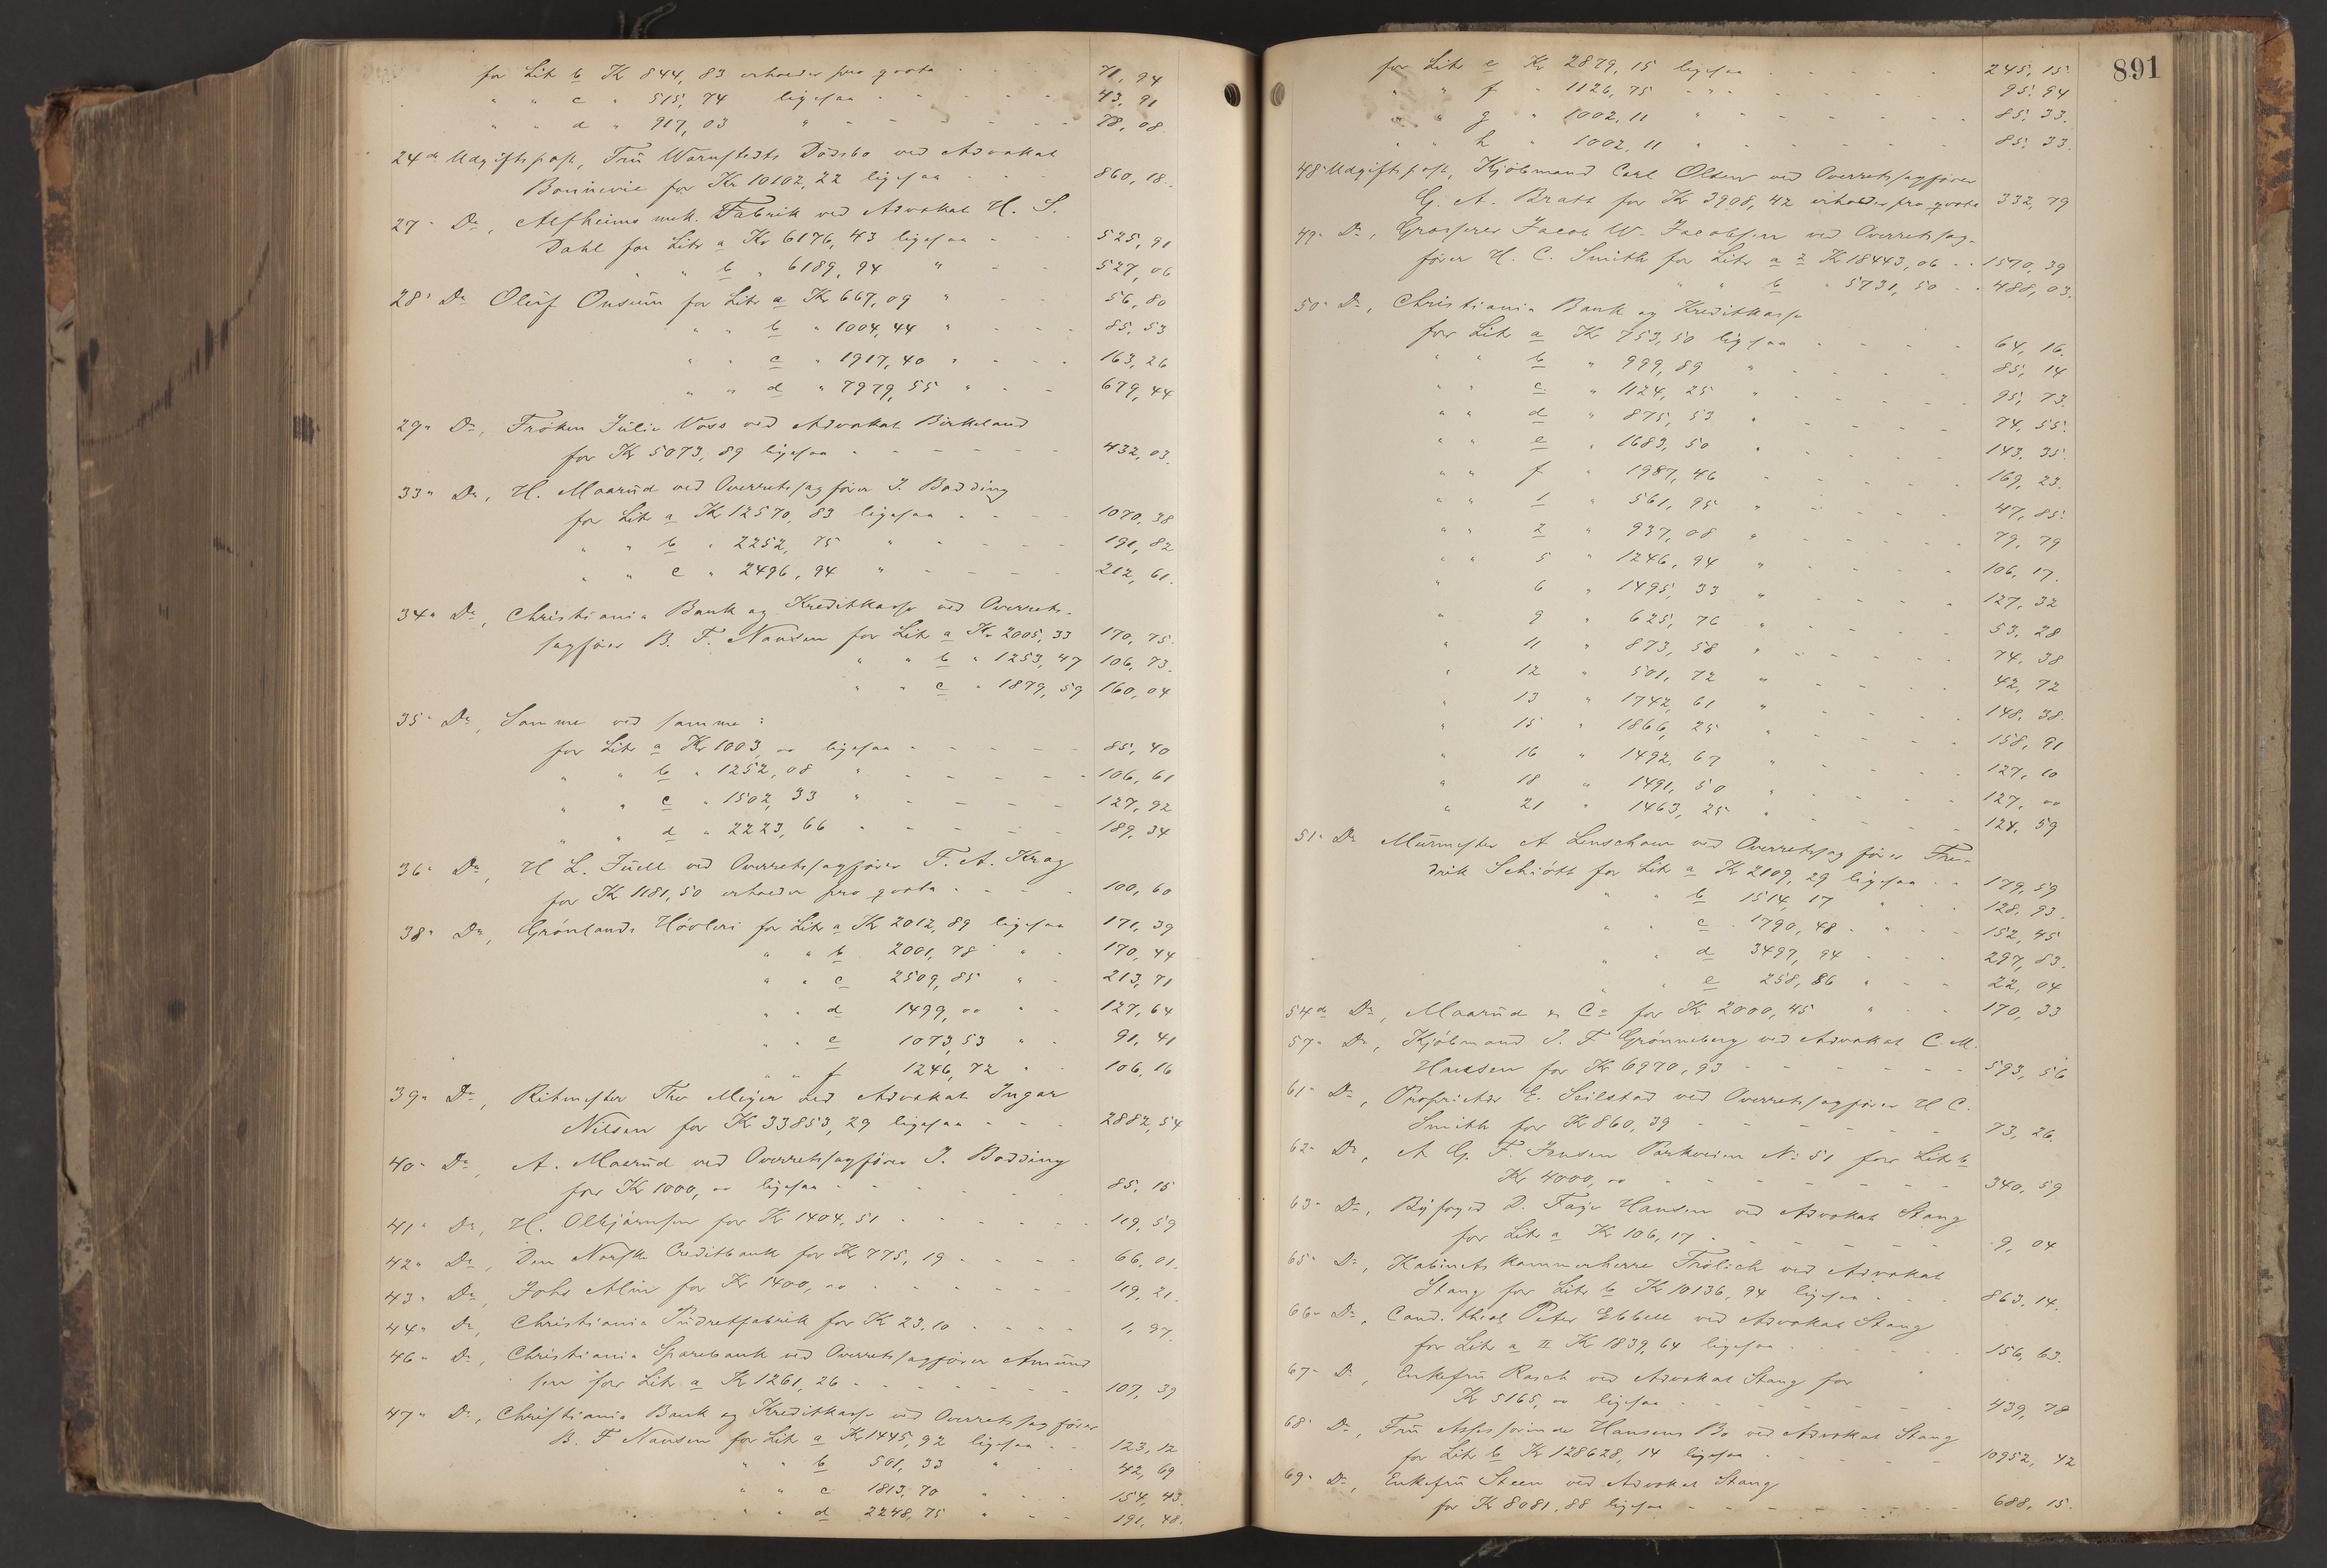 for Litr b Kr 844, 83 erholder pro qvota - - 71, 94
" " c " 515, 74 ligesaa - - - - - 43, 91
" " d " 917, 03 " - - - - - - 78, 08.
24de Udgiftspost, Frü Warnstedts Dödsbo ved Advokat
Bonnevie for Kr 10102, 22 ligesaa - - - 860, 18.
27" Do, Alfheims mek. Fabrik ved Advokat H. S.
Dahl for Litr a Kr 6176, 43 ligesaa - - - 525, 91
" " b " 6189, 94 " - - 527, 06
28" Do Olüf Onsüm for Litr a Kr 667, 09 " - - 56, 80
" " b " 1004, 44 " - - - 85, 53
" " c " 1917, 40 " - - - 163, 26
" " d " 7979, 55 " - - 679, 44
29" Do, Fröken Jülie Voss ved Advokat Birkeland
for Kr 5073, 89 ligesaa - - - - - - 432, 03.
33" Do, H. Maarüd ved Overretssagförer J. Bödding
for Litr a Kr 12570, 83 ligesaa - - - - 1070, 38
" " b " 2252, 75 " - - - - 191, 82
" " c " 2496, 94 " - - - - 212, 61.
34" Do, Christiania Bank og Kreditkasse ved Overrets-
sagförer B. F. Nansen for Litr a Kr 2005, 33 170, 75.
" " b " 1253, 47 106, 73.
" " c " 1879, 59 160, 04
35" Do, Samme ved samme:
for Litr a Kr 1003, oo ligesaa - - - - - 85, 40
" " b " 1252, 08 " - - - - - 106, 61
" " c " 1502, 33 " - - - - 127, 92
" " d " 2223, 66 " - - - - 189, 34
36" Do, H L. Jüell ved Overretssagförer F. A. Krag
for Kr 1181, 50 erholder pro qvota - - - - 100, 60
38" Do, Grönlands Hövleri for Litr a Kr 2012, 89 ligesaa 171, 39
" " b 2001, 78 " - 170, 44
" " c 2509, 85 " - 213, 71
" " d 1499, oo " - 127, 64
" " e 1073, 53 " - 91, 41
" " f 1246, 72 " - 106, 16
39" Do, Ritmester Thv Meijer ved Advokat Ingar
Nilsen for Kr 33853, 29 ligesaa - - - 2882, 54
40" Do, A. Maarüd ved Overretssagförer J. Bödding
for Kr 1000, oo ligesaa - - - - - - 85, 15
41" Do, H. Olbjörnsen for Kr 1404, 51 - - - - - - 119, 59
42" Do, Den Norske Creditbank for Kr 775, 19 - - - - 66, 01.
43" Do, Johs Alm for Kr 1400, oo - - - - - - 119, 21.
44" Do, Christiania Püdretfabrik for Kr 23, 10 - - - - 1, 97.
46" Do, Christiania Sparebank ved Overretssagförer Amünd
sen for Litr a Kr 1261, 26 - - - - - - - 107, 39
47" Do, Christiania Bank og Kreditkasse ved Overretssagförer
B. F Nansen for Litr a Kr 1445, 92 ligesaa - - 123, 12
" " b 501, 33 " - - 42, 69
" " c 1813, 70 " - - 154, 43.
" " d 2248, 75 " - - 191, 48.
891
for Litr e Kr 2879, 15 ligesaa - - - - - 245, 15.
" " f " 1126, 75 - " - - - - - 95, 94
" " g " 1002, 11 " - - - - - - 85, 33.
" " h " 1002, 11 " - - - - - - 85, 33.
48" Udgiftspost, Kjöbmand Carl Olsen ved Overretssagförer
G. A. Bratt for Kr 3908, 42 erholder pro qvota 332, 79
49" Do, Grosserer Jacob W. Jacobsen ved Overretssag-
förer H. C. Smith for Litr a 2 Kr 18443, 06 - - 1570, 39
" " b " 5731, 50 - - 488, 03.
50" Do, Christiania Bank og Kreditkasse
for Litr a Kr 753, 50 ligesaa - - - - 64, 16.
" " b " 999, 89 " - - - - 85, 14
" " c " 1124, 25 " - - - - 95, 73.
" " d " 875, 53 " - - - - 74, 55.
" " e " 1683, 50 " - - - - 143, 35.
" " f " 1987, 46 - - - - 169, 23.
" " 1 " 561, 95 " - - - - 47, 85.
" " 2 " 937, 08 " - - - - 79, 79
" " 5 " 1246, 94 " - - - - 106, 17.
" 6 " 1495, 33 " - - - - 127, 32
" 9 " 625, 76 " - - - - 53, 28
" 11 " 873, 58 " - - - - 74, 38
" 12 " 501, 72 " - - - - 42, 72
" 13 " 1742, 61 " - - - - 148, 38.
" 15 " 1866, 25 " - - - - 158, 91
" 16 " 1492, 67 " - - - - 127, 10
" 18 " 1491, 50 " - - - - 127, oo
" 21 " 1463, 25 " - - - - 124, 59
51" Do Mürmester A Lenschow ved Overretssagförer Fre-
drik Schiött for Litr a Kr 2109, 29 ligesaa - - 179, 59
" " b 1514, 17 " - - 128, 93.
" " c 1790, 48 - " - - 152, 45
" " d 3497, 94 - - - 297, 83.
" " e 258, 86 " - - 22, 04
54de Do, Maarüd & Co for Kr 2000, 45 " - - 170, 33
57" Do, Kjöbmand J. F Grönneberg ved Advokat C. M.
Hansen for Kr 6970, 93 - - - - - - - 593, 56
61" Do, Proprietær E. Seilstad ved Overretssagförer H C.
Smith for Kr 860, 39 - - - - - - - 73, 26.
62" Do, A G. F. Jensen Parkveien No 51 for Litr b
Kr 4000, oo - - - - - - - - 340, 59
63" Do, Byfoged D. Faye Hansen ved Advokat Stang
for Litr a Kr 106, 17 - - - - - - 9, 04
65" Do, Kabinetskammerherre Frölich ved Advokat
Stang for Litr b Kr 10136, 94 ligesaa - - - 863, 14.
66" Do, Cand. theol Peter Ebbell ved Advokat Stang
for Litr a II Kr 1839, 64 ligesaa - - - - 156, 63.
67" Do, Enkefrü Rasch ved Advokat Stang for
Kr 5165, oo ligesaa - - - - - - - 439, 78
68" Do, Frü Assessorinde Hansens Bo ved Advokat Stang
for Litr b Kr 128628, 14 ligesaa - - - - - 10952, 42
69" Do, Enkefrü Steen ved Advokat Stang
for Kr 8081, 88 ligesaa - - - - - - - 688, 15.